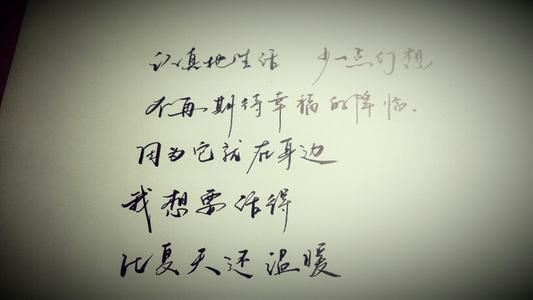 认真地生活 少一点幻想
不再期待幸福的降临.
因为它就在耳边
我想要活得
比夏天还温暖